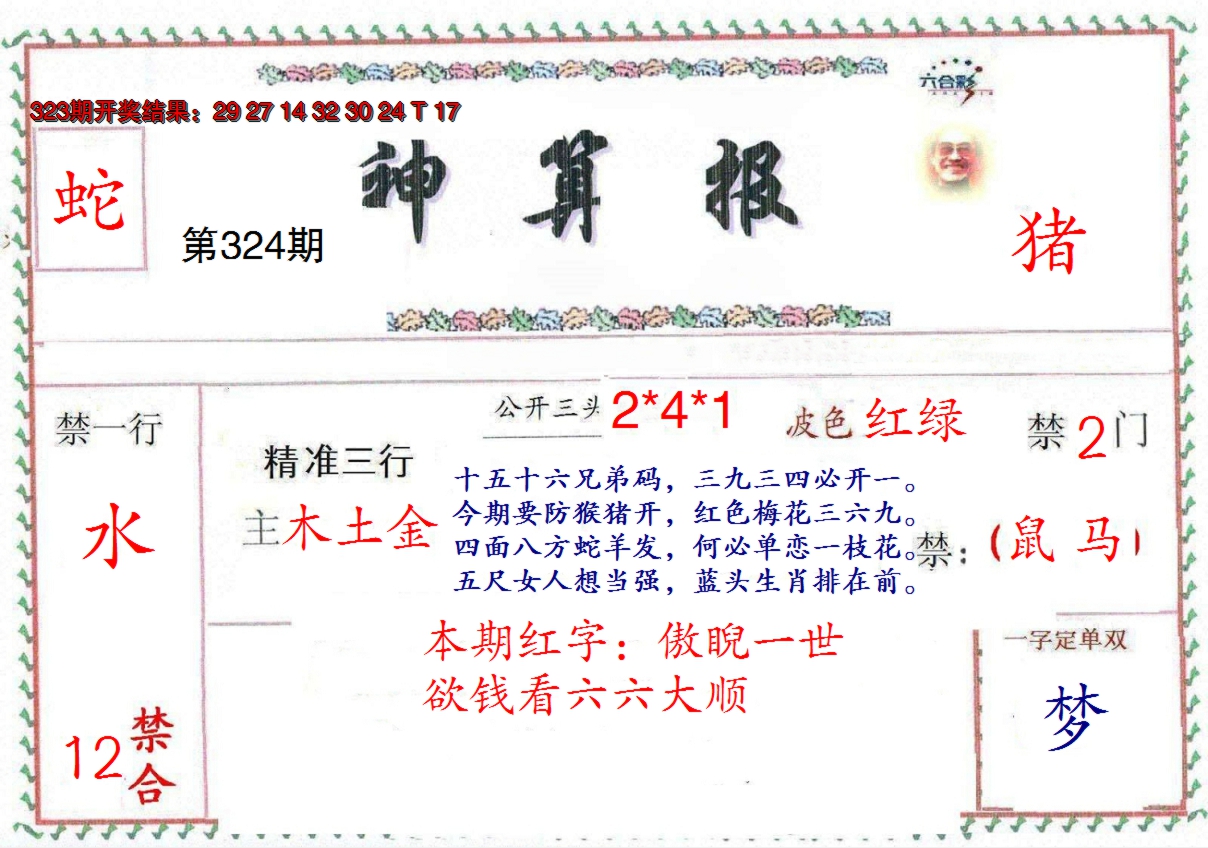 六合彩
323期开奖结果：29 27 14 32 30 24 T 17
神算报
蛇
第324期
猪
公开三头 2*4*1
波色 红绿
禁一行
禁 2 门
精准三行
主 木土金
十五十六兄弟码，三九三四必开一。
今期要防猴猪开，红色梅花三六九。
四面八方蛇羊发，何必单恋一枝花。
五尺女人想当强，蓝头生肖排在前。
水
禁：（鼠 马）
本期红字：傲睨一世
欲钱看六六大顺
一字定单双
梦
12 禁合